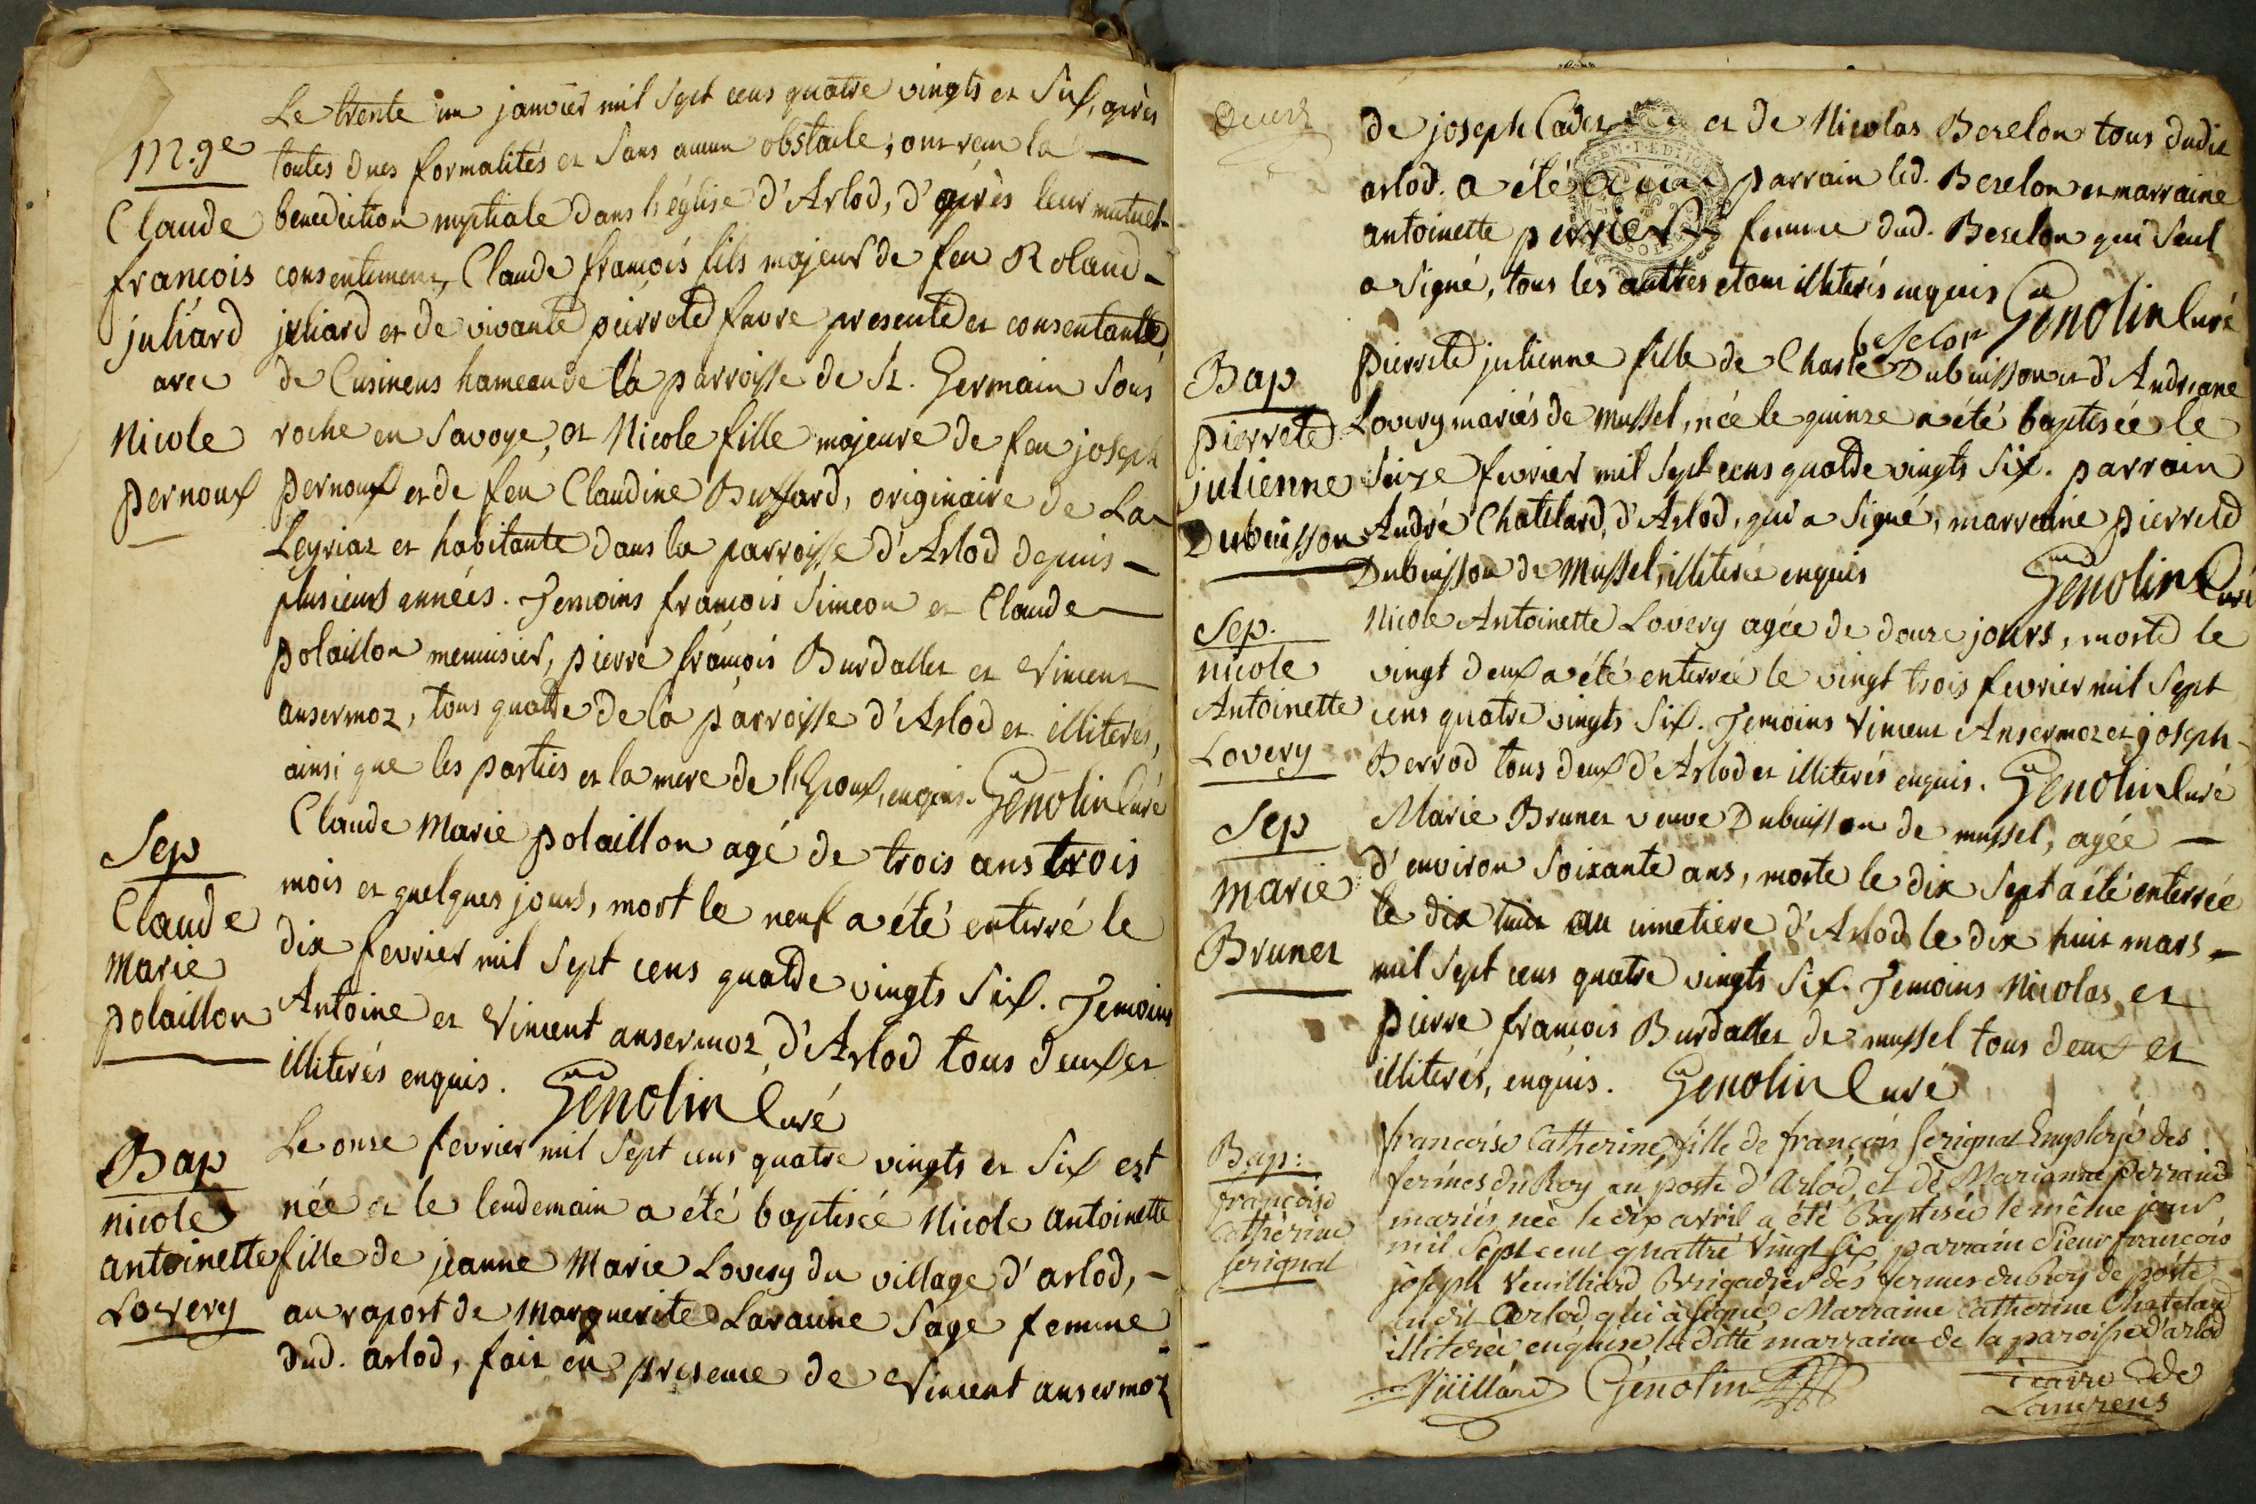 M.ge
Claude
francois
juliard
avec
Nicole
pernoux
Le trente un janvier mil Sept cens quatre vingts et Six, après
toutes dues formalités et Sans aucun obstacle; ont reçu la
benediction nuptiale dans l'église d'Arlod, d'après leur mutuel
consentement, Claude françois fils majeur de feu Roland
juliard et de vivante pierrete favre presente et consentante,
de Cusinens hameau de la parroisse de St. Germain Sous
roche en Savoye, et Nicole fille majeure de feu joseph
pernoux et de feu Claudine Buffard, originaire de La
Leyriaz et habitante dans la parroisse d'Arlod depuis
plusieurs années. Temoins françois Simeon et Claude
polaillon menuisier, pierre françois Burdallet et Vincent
ansermoz, tous quatre de la parroisse d'Arlod et illiterés,
ainsi que les parties et la mere de l'Epoux, enquis. Genolin Curé
Sep
Claude
Marie
polaillon
Claude Marie polaillon agé de trois ans trois
mois et quelques jours, mort le neuf a été enterré le
dix fevrier mil Sept cens quatre vingts Six. Temoins
Antoine et Vincent ansermoz, d'Arlod tous deux et
illiterés enquis. Genolin Curé
Bap
nicole
antoinette
Lovery
Le onze fevrier mil Sept cens quatre vingts et Six est
née et le lendemain a été baptisée Nicole antoinette
fille de jeanne Marie Lovery du village d'arlod,
au raport de Marguerite Laraine Sage femme
dud. arlod, fait en presence de Vincent ansermoz
de joseph Cadet et de Nicolas Berelon tous dudit
arlod. a été parrain led. Berelon et marraine
antoinette perrier femme dud. Berelon qui Seul
a Signé, tous les autres etant illiterés enquis Genolin Curé
Bap
pierrete
julienne
Dubuisson
pierrete julienne fille de Charle Dubuisson et d'Andreane
Lovery mariés de Mussel, née le quinze a été baptisée le
Seize fevrier mil Sept cens quatre vingts Six. parrain
André Chatelard, d'Arlod, qui a Signé, marraine pierrete
Dubuisson de Mussel, illiterée enquis Genolin Curé
Sep.
nicole
Antoinette
Lovery
Nicole Antoinette Lovery agée de douze jours, morte le
vingt deux a été enterrée le vingt trois fevrier mil Sept
cens quatre vingts Six. Temoins Vincent Ansermoz et joseph
Berrod tous deux d'Arlod et illiterés enquis. Genolin Curé
Sep
marie
Brunet
Marie Brunet veuve Dubuisson de mussel, agée
d'environ Soixante ans, morte le dix Sept a été enterrée
le dix huit au cimetiere d'Arlod le dix huit mars
mil Sept cens quatre vingts Six. Temoins Nicolas et
pierre francois Burdallet de mussel tous deux et
illiterés, enquis. Genolin Curé
Bap:
françoise
Catherine
serignat
francoise Catherine, fille de françois serignat Employé des
fermes du Roy au poste d'Arlod, et de Marianne perraud
mariés, née le dix avril a été Baptisée le même jour
mil Sept cent quattre Vingt six parrain Sieur françois
joseph Veuilliard Brigadier des fermes du Roy de poste
audit Arlod qui a signé, Marraine Catherine Chatelard
illiterée enquise la ditte marraine de la paroisse d'arlod
Vüillard Genolin
Laurens